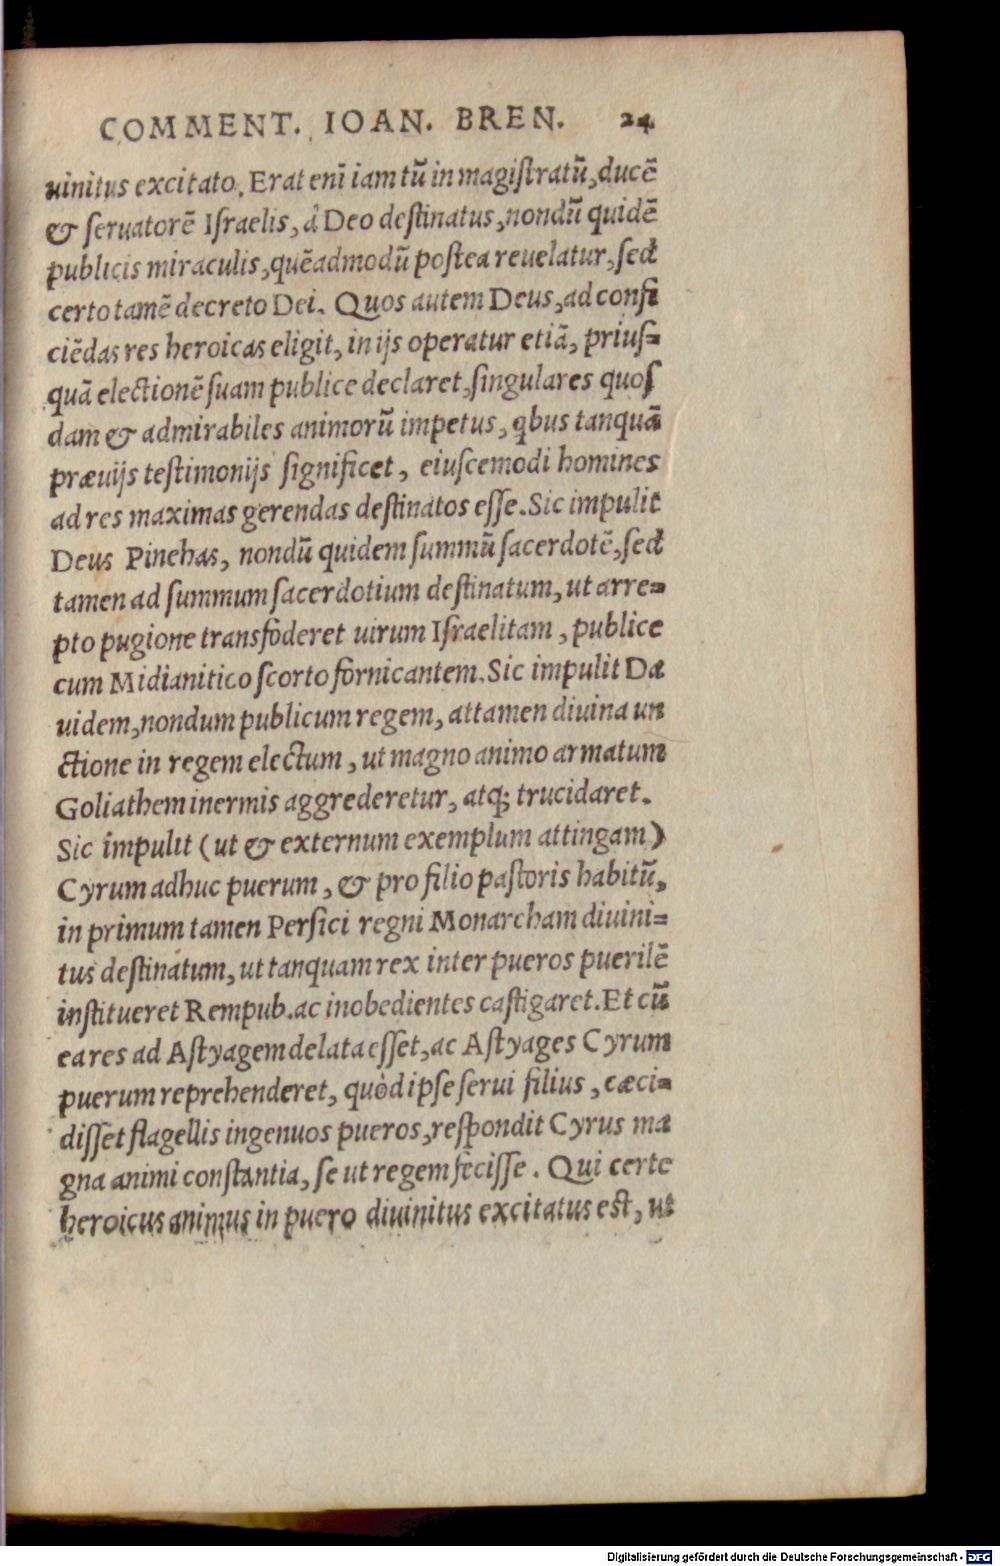 COMMENT. IOAN. BREN. 24
uinitus excitato. Erat enī iam tū in magiſtratū, ducē
& ſeruatorē Iſraelis, à Deo deſtinatus, nondū quidē
publicis miraculis, quēadmodū poſtea reuelatur, ſed
certo tamē decreto Dei. Quos autem Deus, ad confi
ciēdas res heroicas eligit, in ijs operatur etiā, priuſ=
quā electionē ſuam publice declaret, ſingulares quoſ
dam & admirabiles animorū impetus, qbus tanquā
præuijs teſtimonijs ſignificet, eiuſcemodi homines
ad res maximas gerendas deſtinatos eſſe. Sic impulit
Deus Pinehas, nondū quidem ſummū ſacerdotē, ſed
tamen ad ſummum ſacerdotium deſtinatum, ut arre=
pto pugione transfoderet uirum Iſraelitam, publice
cum Midianitico ſcorto fornicantem. Sic impulit Da
uidem, nondum publicum regem, attamen diuina un
ctione in regem electum, ut magno animo armatum
Goliathem inermis aggrederetur, atq; trucidaret.
Sic impulit (ut & externum exemplum attingam)
Cyrum adhuc puerum, & pro filio paſtoris habitū,
in primum tamen Perſici regni Monarcham diuini=
tus deſtinatum, ut tanquam rex inter pueros puerilē
inſtitueret Rempub. ac inobedientes caſtigaret. Et cū
ea res ad Aſtyagem delata eſſet, ac Aſtyages Cyrum
puerum reprehenderet, quòd ipſe ſerui filius, cæci=
diſſet flagellis ingenuos pueros, reſpondit Cyrus ma
gna animi conſtantia, ſe ut regem feciſſe. Qui certe
heroicus animus in puero diuinitus excitatus eſt, ut
Digitalisierung gefördert durch die Deutsche Forschungsgemeinschaft - DFG